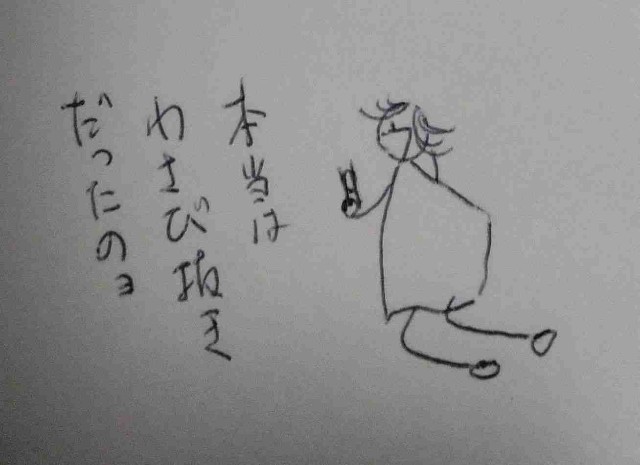 本当は
わさび抜き
だったのョ